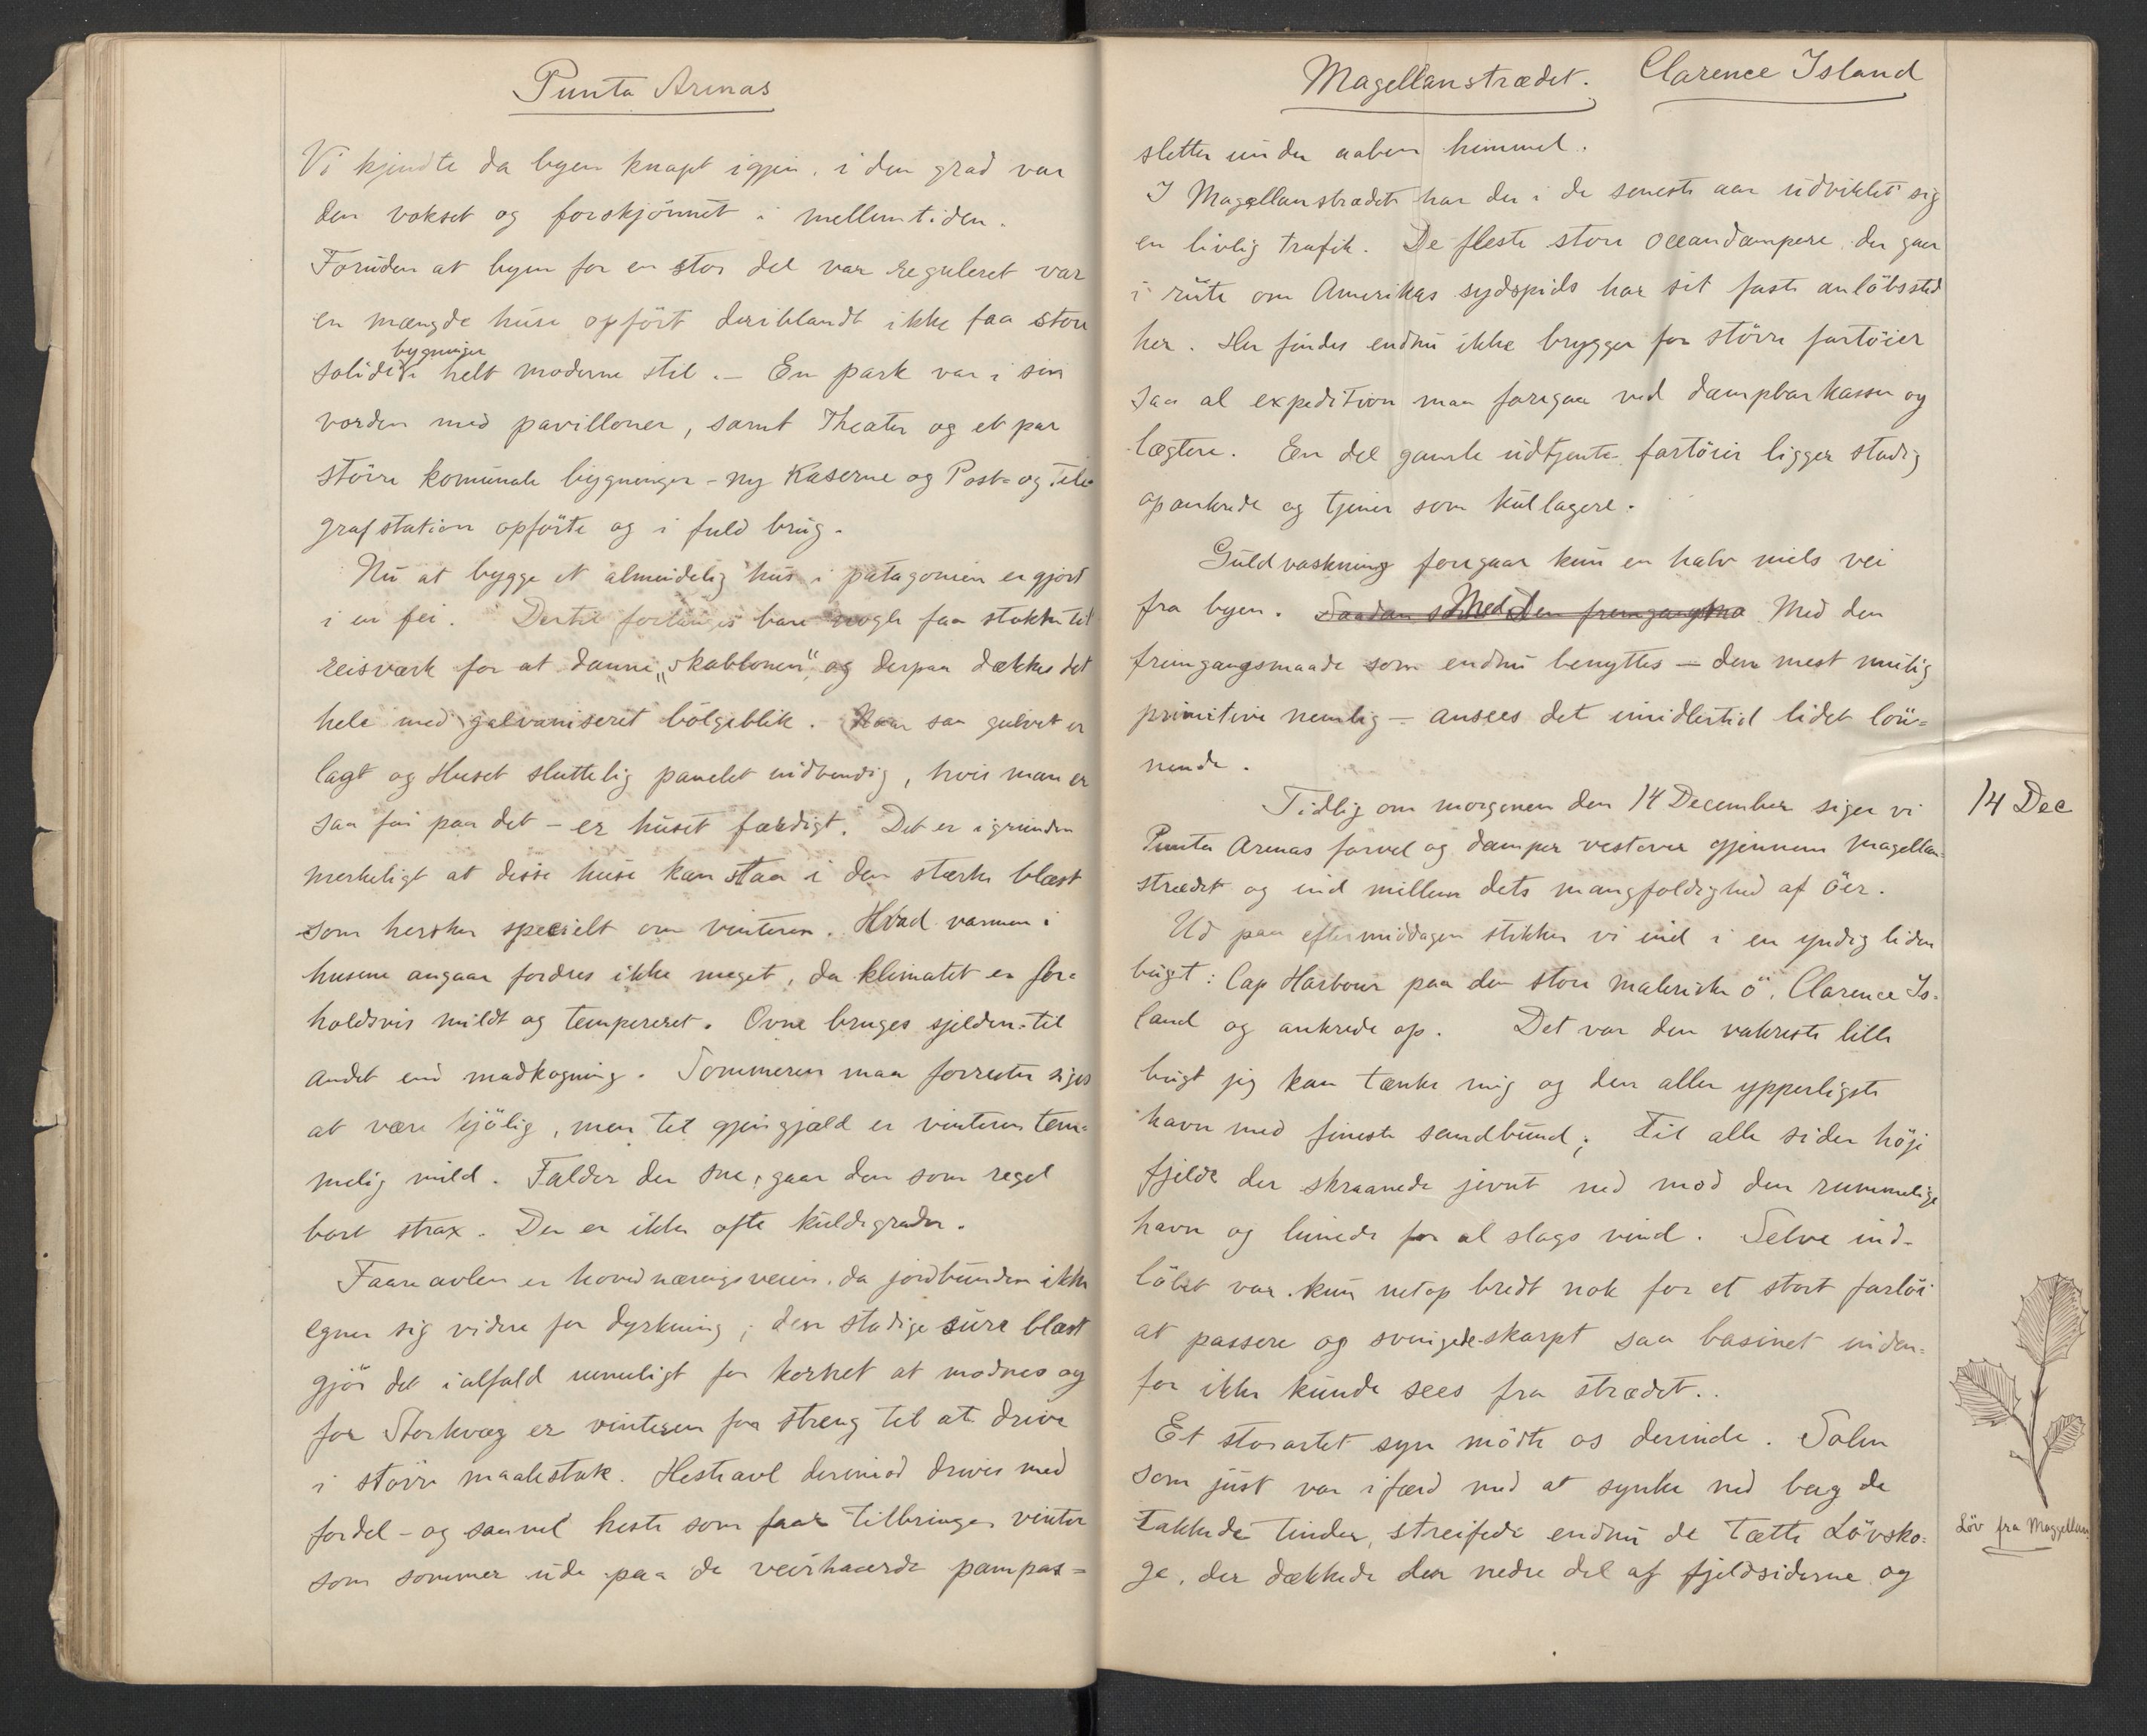 Punta Arenas
Vi kjendte da byen knapt igjen, i den grad var
den vokset og forskjönnet i mellemtiden.
Foruden at byen for en stor del var reguleret var
en mængde huse opfört deriblandt ikke faa store
bygninger
solide i helt moderne stil. – En park var i sin
vorden med pavilloner, samt Theater og et par
större komunale bygninger – ny Kaserne og Post- og Tele-
grafstation opförte og i fuld brug.
Nu at bygge et almindelig hus i patagonien er gjort
i en fei. Dertil forlanges bare nogle faa stokke til
reisværk for at danne „skablonen“, og derpaa dækkes det
hele med galvaniseret bölgeblik. Naar saa gulvet er
lagt og Huset sluttelig panelet indvendig, hvis man er
saa fin paa det – er huset færdigt. Det er igrunden
merkeligt at disse huse kan staa i den stærke blæst
som hersker specielt om vinteren. Hvad varmen i
husene angaar fordres ikke meget, da klimatet er for-
holdsvis mildt og tempereret. Ovne bruges sjelden til
andet end madkogning. Sommeren maa forresten siges
at være kjölig, men til gjengjæld er vinteren tem-
melig mild. Falder der sne, gaar den som regel
bort strax. Der er ikke ofte kuldegrader.
Faareavlen er hovednæringsveien, da jordbunden ikke
egner sig videre for dyrkning; den stadige sure blæst
gjör det ialfald umuligt for kornet at modnes og
for Storkvæg er vinteren for streng til at drive
i större maalestok. Hesteavl derimod drives med
fordel – og saavel heste som faar tilbringer vinter
som sommer ude paa de veirhaarde pampas=
Magellanstrædet. Clarence Island
sletter under aaben himmel.
I Magellanstrædet har der i de seneste aar udviklet sig
en livlig trafik. De fleste store oceandampere der gaar
i rute om Amerikas sydspids har sit faste anlöbssted
her. Her findes endnu ikke brygger for större fartöier
saa al expedition maa foregaa ved dampbarkasser og
lægtere. En del gamle udtjente fartöier ligger stadig
opankrede og tjener som kullagere.
Guldvaskning foregaar kun en halv miels vei
fra byen. Saadan som Med den fremgangsma Med den
fremgangsmaade som endnu benyttes – den mest mulig
primitive nemlig – ansees det imidlertid lidet lön=
nende.
Tidlig om morgenen den 14 December siger vi
14 Dec
Punta Arenas farvel og damper vestover gjennem Magellan-
strædet og ind mellem dets mangfoldighed af öer.
Ud paa eftermiddagen stikker vi ind i en yndig liden
bugt: Cap Harbour paa den store maleriske ö, Clarence Is-
land og ankrede op. Det var den vakreste lille
bugt jeg kan tænke mig og den aller ypperligste
havn med fineste sandbund; til alle sider höje
fjelde der skraanede jevnt ned mod den rummelige
havn og lunede for al slags vind. Selve ind-
löbet var kun netop bredt nok for et stort fartöi
at passere og svingede skarpt saa basinet inden-
for ikke kunde sees fra strædet.
Et storartet syn mödte os derinde. Solen
som just var ifærd med at synke ned bag de
takkede tinder, streifede endnu de tætte Lövsko-
ge, der dækkede den nedre del af fjeldsiderne og
Löv fra Magellan